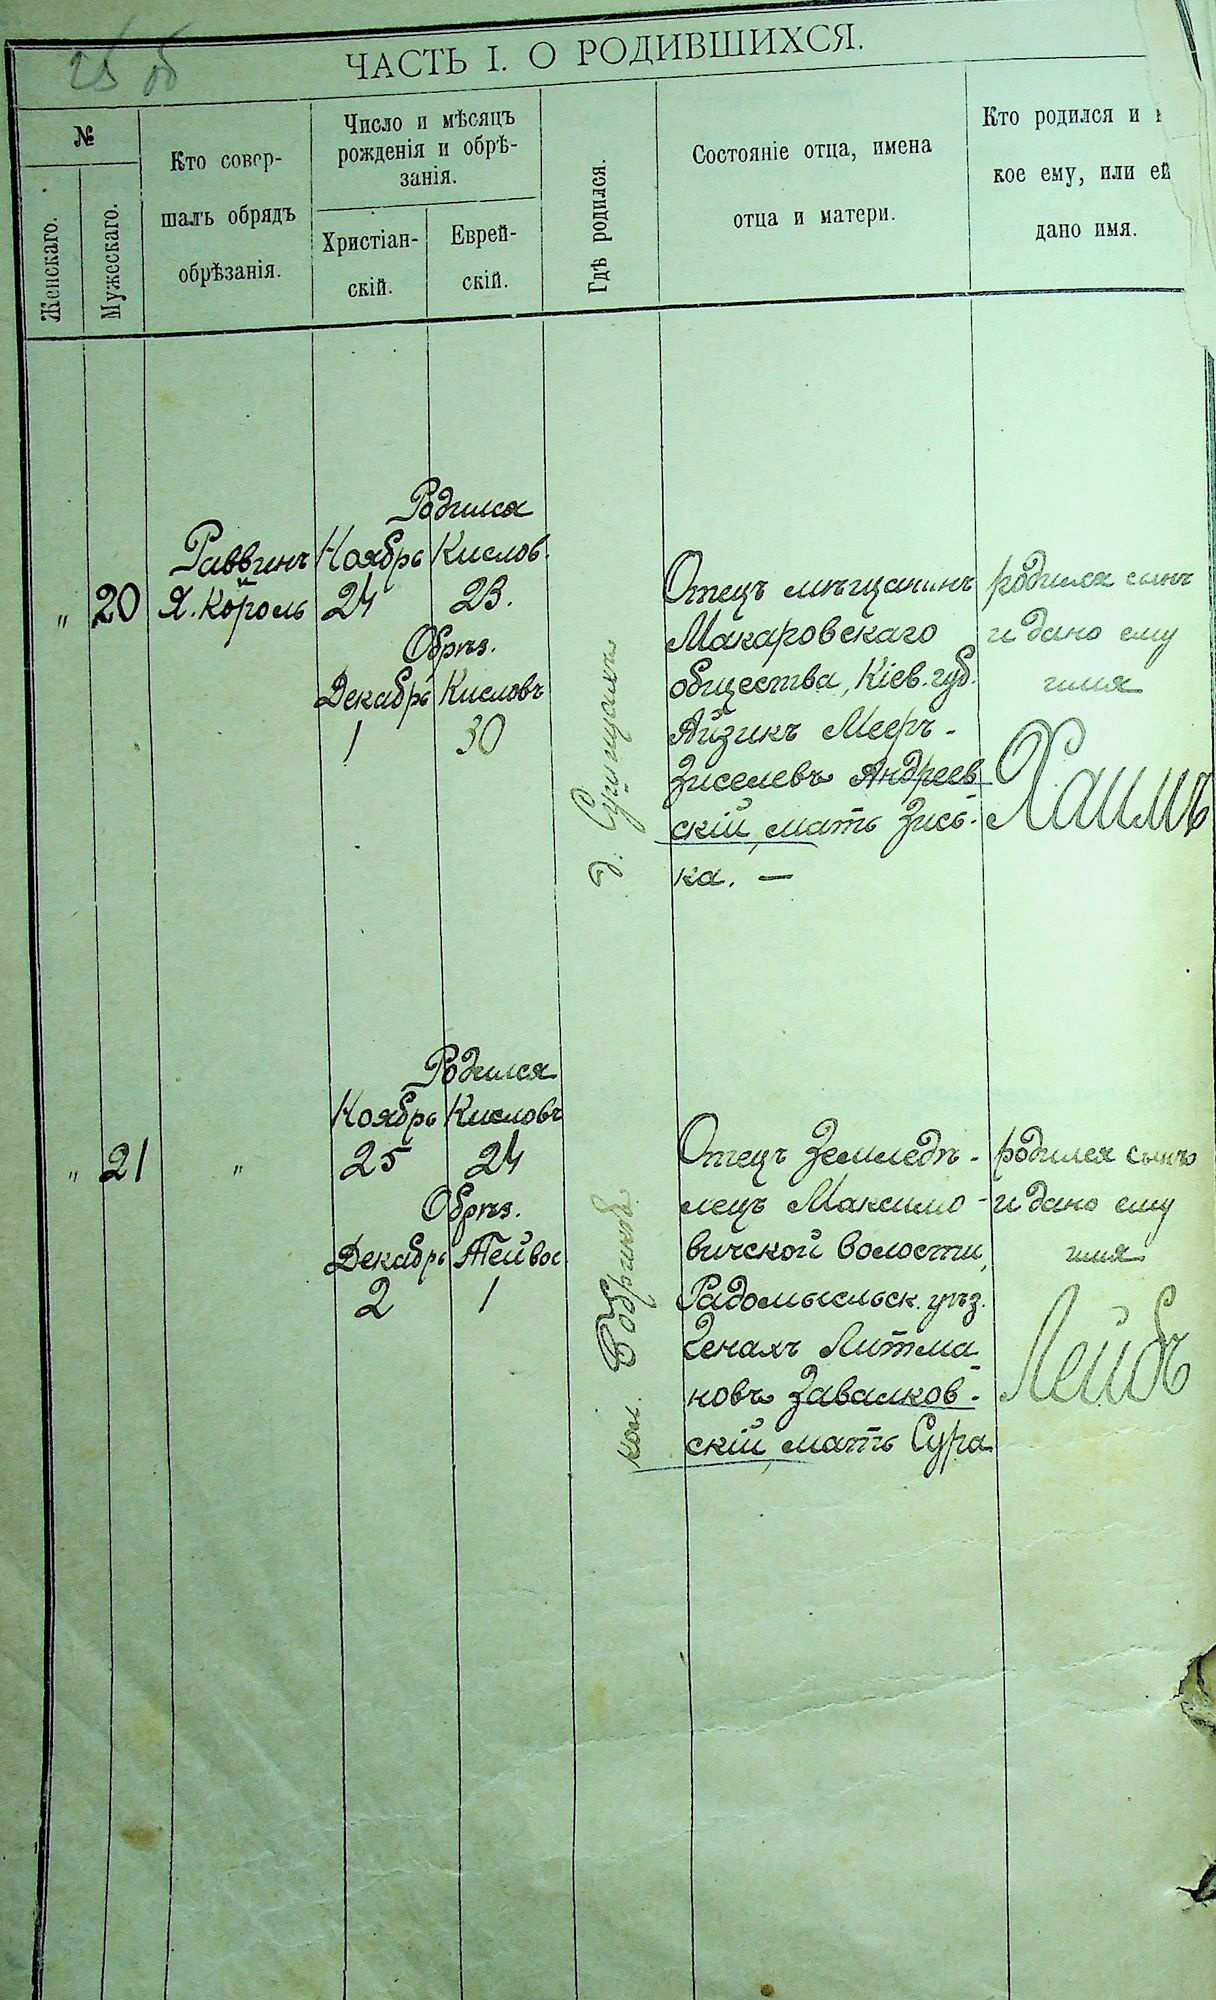 25 об
ЧАСТЬ I. О РОДИВШИХСЯ.
№
Женскаго.
Мужескаго.
Кто совер-
шалъ обрядъ
обрѣзанія.
Число и мѣсяцъ
рожденія и обрѣ-
занія.
Христіан-
скій.
Еврей-
скій.
Гдѣ родился.
Состояніе отца, имена
отца и матери.
Кто родился и
кое ему, или ей
дано имя.
„ 20
Раввинъ
Я. Король
Родился
Ноябрь Кислов.
24 23.
Обрѣз.
Декабрь Кисловъ
1 30
д.
Отецъ мѣщанинъ
Макаровскаго
общества, Кіев. губ.
Айзикъ Мееръ-
Зиселевъ Андреев
скій, мать Зись-
ка. —
родился сынъ
и дано ему
имя
Хаимъ
„ 21 „
Родился
Ноябрь Кисловъ
25 24
Обрѣз.
Декабрь Тейвос.
2 1
кол. Бобрикѣ
Отецъ Земледѣ-
лецъ Максимо-
вичской волости,
Радомысльск. уѣз.
Генахъ Литма-
новъ Завалков-
скій, мать Сура
родился сынъ
и дано ему
имя
Лейбъ